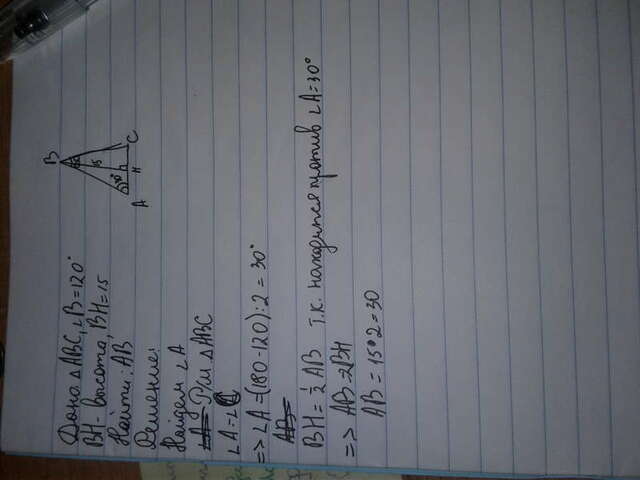 Дано: △ABC, ∠B=120°
BH- высота, BH=15
Найти: AB
Решение:
Найдем ∠A
∠A= Р/м △ABC
∠A=∠C
=> ∠A=(180-120):2 = 30°
AB=
BH= 1/2 AB т.к. находится против ∠A=30°
=> AB=2BH
AB = 15•2=30
B
15
30°
A
H
C